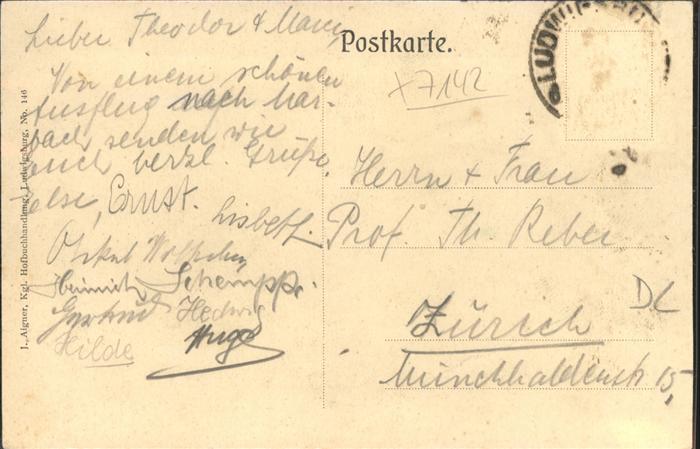 Lieber Theodor & Marie,
Von einem schönen
Ausflug nach Mar-
bach senden wir
euch herzl. Grüße,
Else, Ernst.
Lisbeth.
Onkel
Heinrich Schempp.
Gertrud Hedwig
Hilde Hugo
J. Aigner, Kgl. Hofbuchhandlung, Ludwigsburg, No. 146
Postkarte.
LUDWIGSBURG
x7142
Herrn & Frau
Prof. Th. Reber
DL
Zürich
Münchhaldenstr 15,